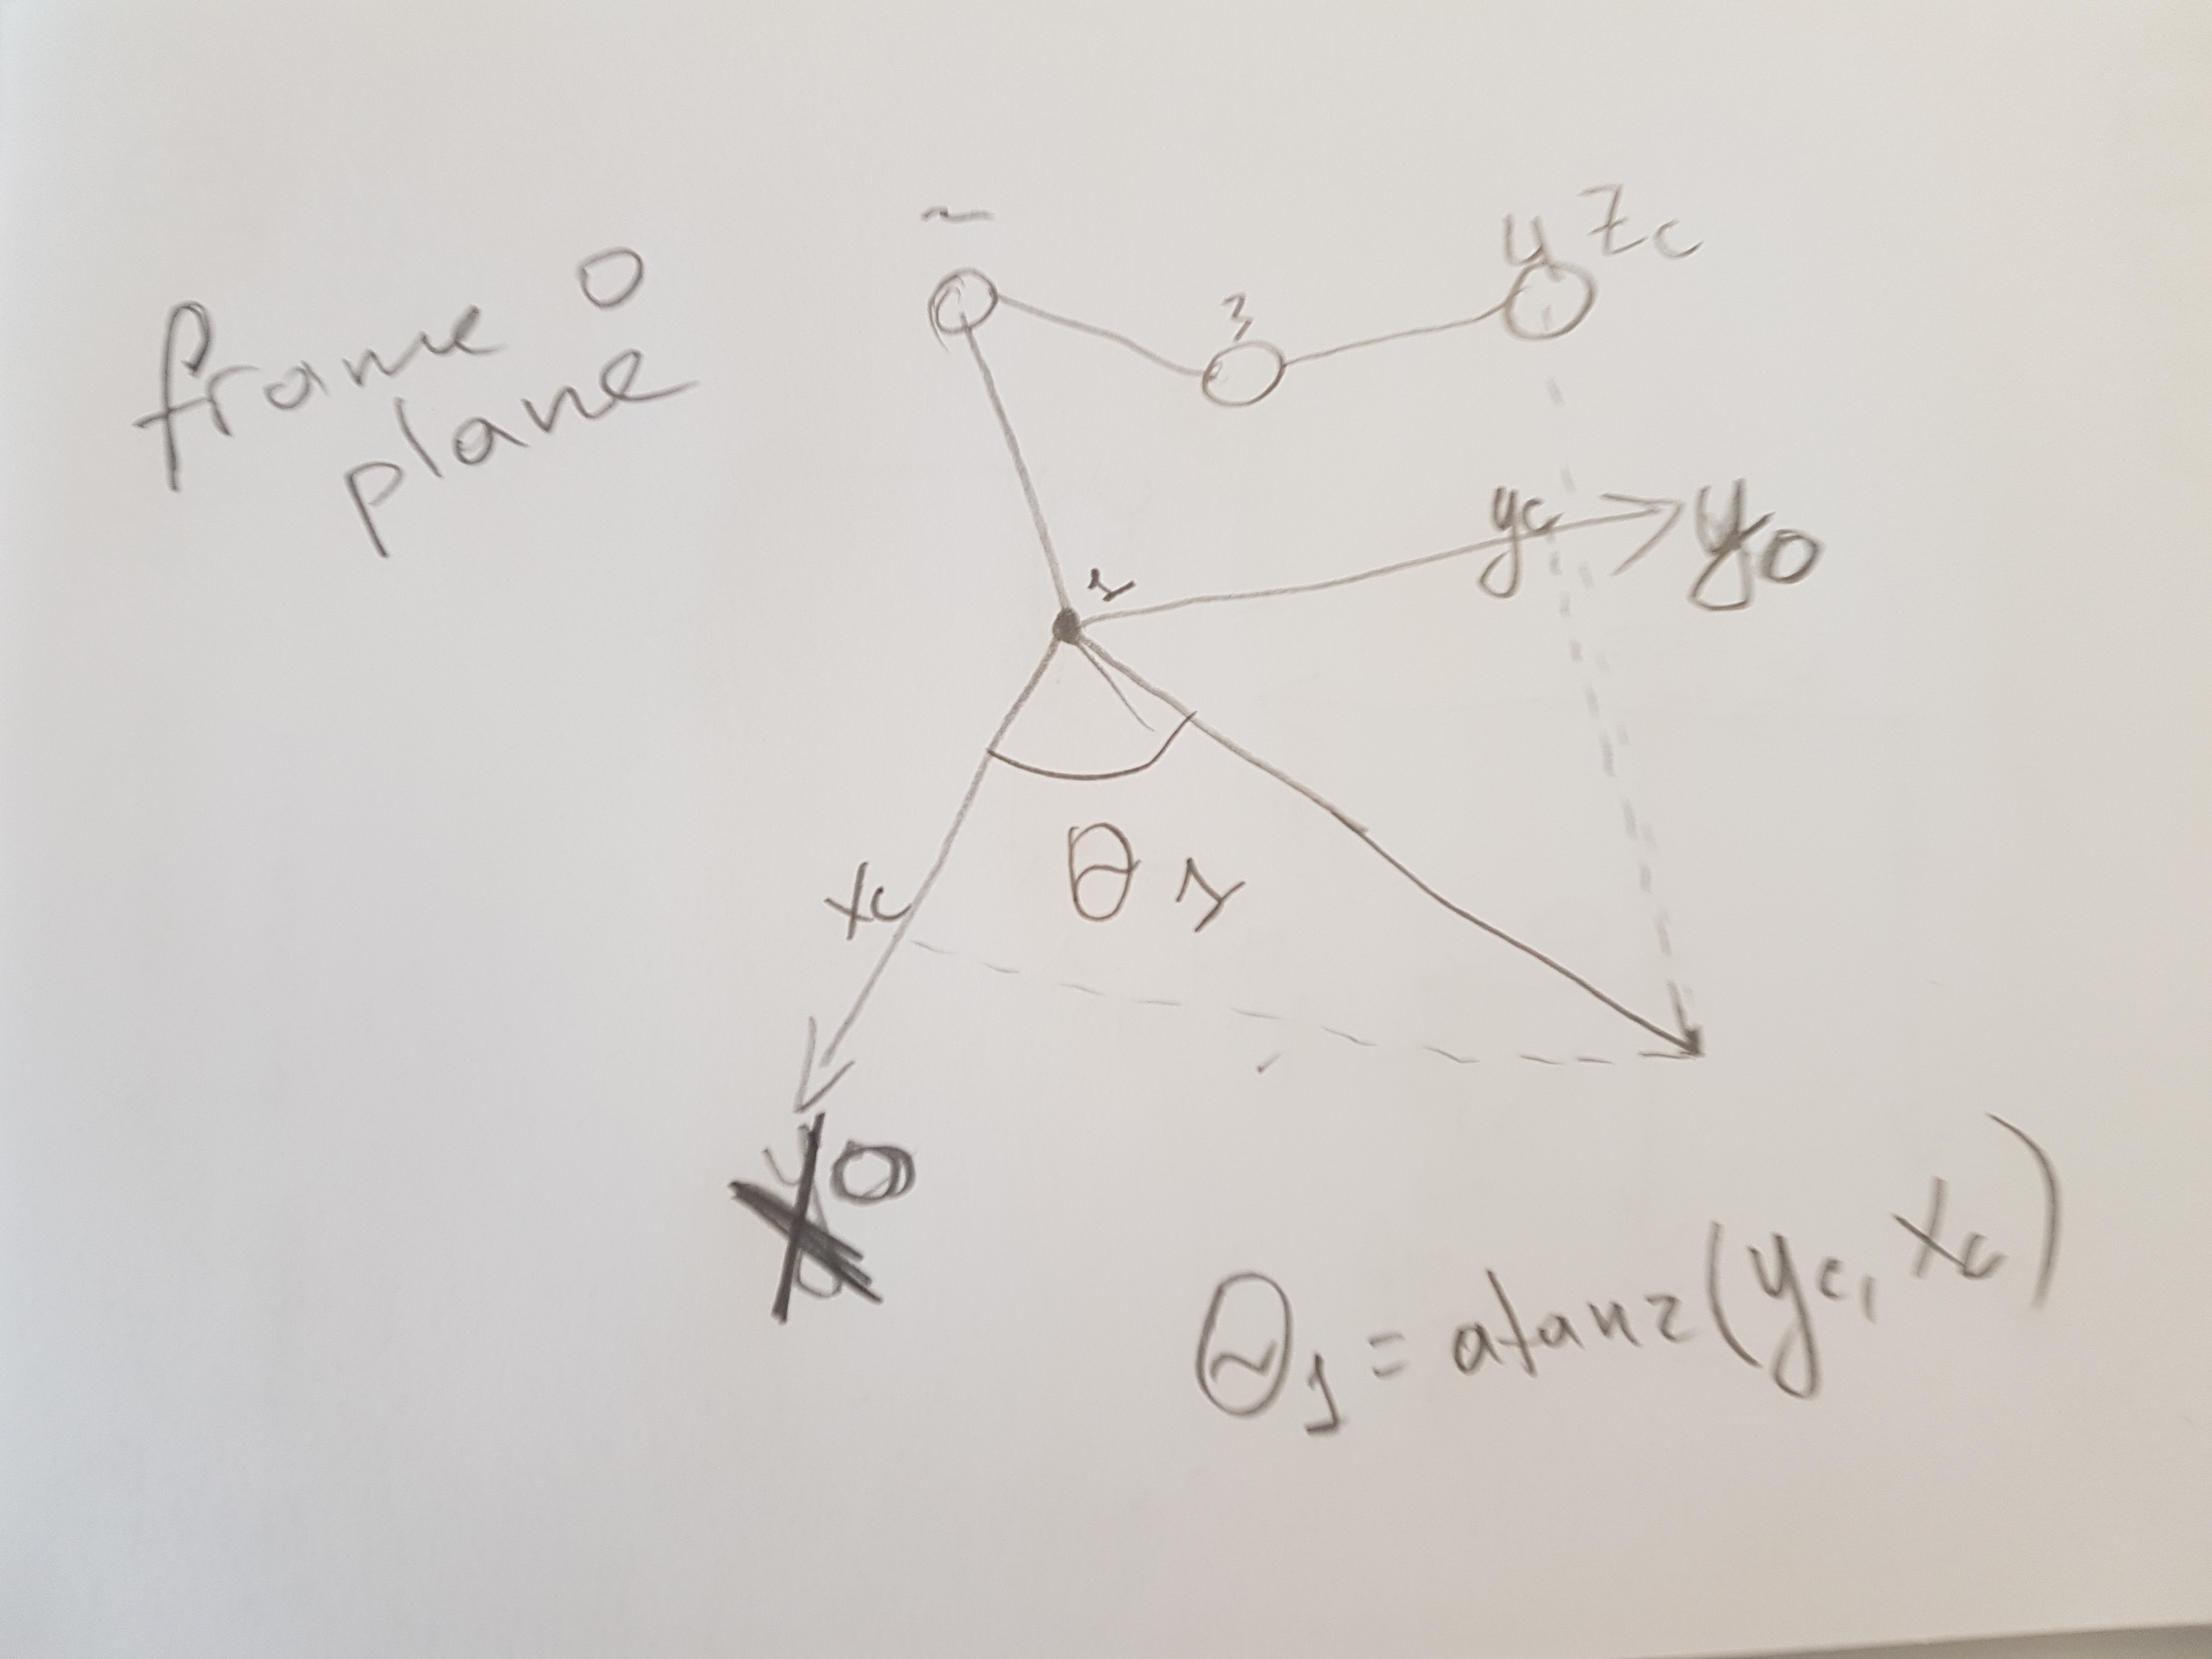 frame 0
plane
3
4 zc
yc
y0
1
xc
θ 1
x0
θ1 = atan2(yc, xc)